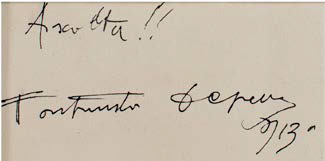 Ascolta!!
Fortunato Depero
913